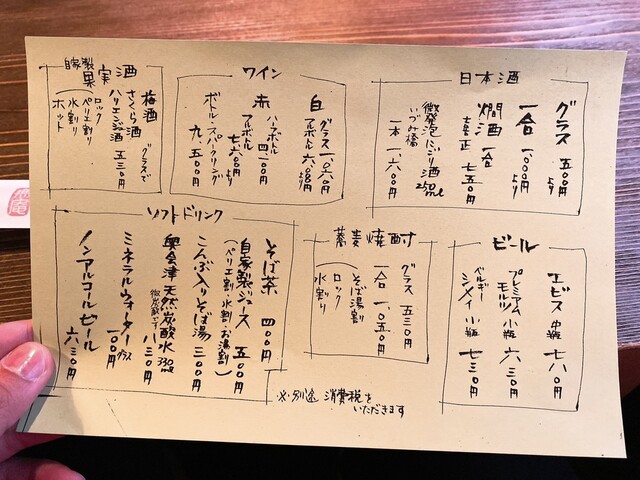 日本酒
グラス 五〇〇円より
一合 一、〇〇〇円より
燗酒 一合 七五〇円
微発泡にごり酒 250ml
いづみ橋
一本 一、六〇〇円
ワイン
白 グラス 一、〇六〇円より
フルボトル 六、〇〇〇円より
赤 ハーフボトル 四、一〇〇円
フルボトル 七、六〇〇円より
ボトル・スパークリング
九、五〇〇円
自家製
果実酒
梅酒
さくら酒
ハリエンジュ酒
グラスで
五三〇円
ロック
ペリエ割り
水割り
ホット
ビール
エビス 中瓶 七八〇円
プレミアム
モルツ 小瓶 六三〇円
ベルギー
シメイ 小瓶 七三〇円
蕎麦焼酎
グラス 五三〇円
一合 一、〇五〇円
そば湯割
ロック
水割り
ソフトドリンク
そば茶 四〇〇円
自家製ジュース 五〇〇円
(ペリエ割・水割・お湯割)
こんぶ入りそば湯 三〇〇円
奥会津天然炭酸水 330ml
微炭酸です 八三〇円
ミネラルウォーター グラス 一〇〇円
ノンアルコールビール 六三〇円
※別途 消費税を
いただきます